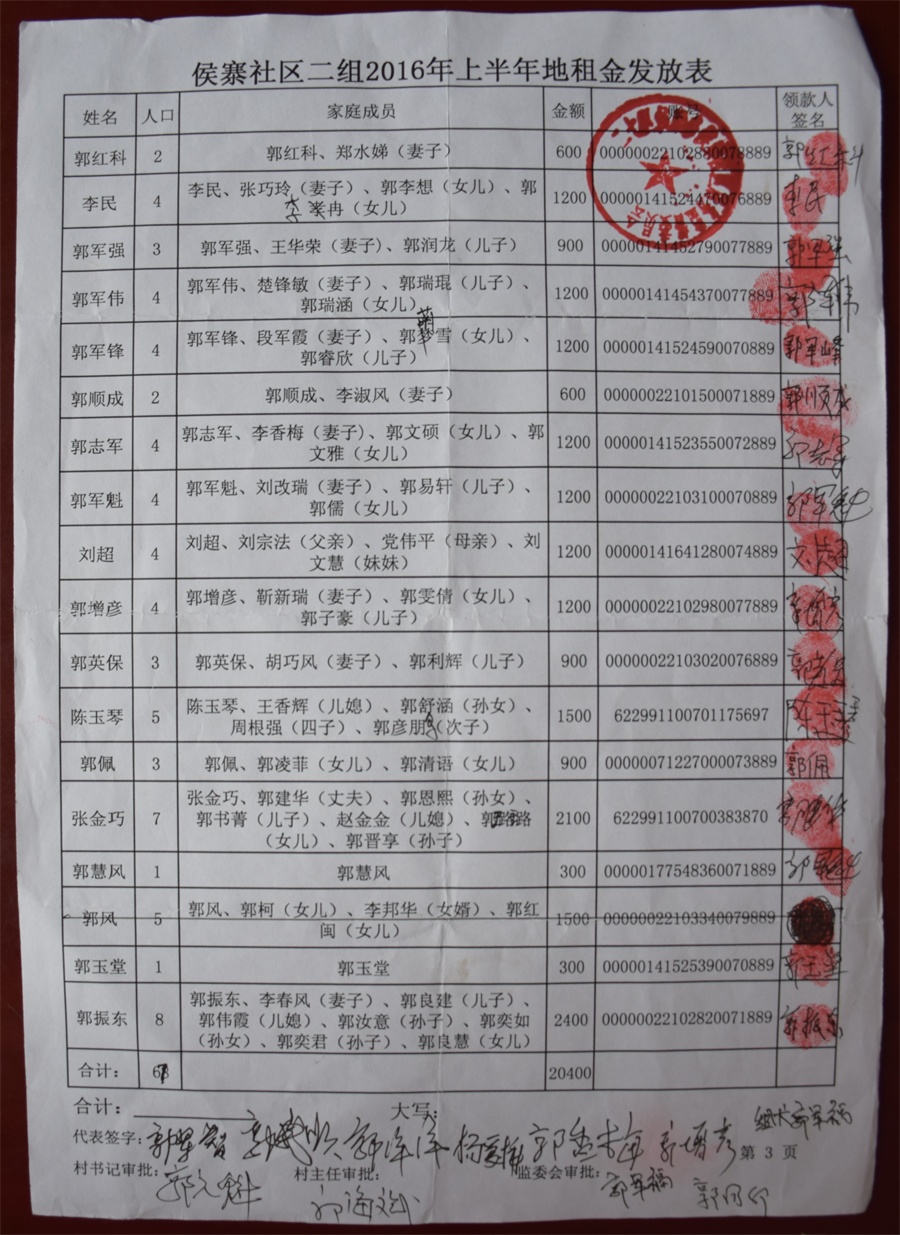 侯寨社区二组2016年上半年地租金发放表
姓名 人口 家庭成员 金额 账号 领款人
签名
郭红科 2 郭红科、郑水娣（妻子） 600 00000022102880078889 郭红科
李民 4 李民、张巧玲（妻子）、郭李想（女儿）、郭 1200 00000141524470076889 李民
李 冉（女儿）
郭军强 3 郭军强、王华荣（妻子）、郭润龙（儿子） 900 00000141452790077889 郭军强
郭军伟 4 郭军伟、楚锋敏（妻子）、郭瑞琨（儿子）、 1200 00000141454370077889 郭军伟
郭瑞涵（女儿）
萌
郭军锋 4 郭军锋、段军霞（妻子）、郭梦雪（女儿）、 1200 00000141524590070889 郭军峰
郭睿欣（儿子）
郭顺成 2 郭顺成、李淑风（妻子） 600 00000022101500071889 郭顺成
郭志军 4 郭志军、李香梅（妻子）、郭文硕（女儿）、郭 1200 00000141523550072889 郭志军
文雅（女儿）
郭军魁 4 郭军魁、刘改瑞（妻子）、郭易轩（儿子）、 1200 00000022103100070889 郭军魁
郭儒（女儿）
刘超 4 刘超、刘宗法（父亲）、党伟平（母亲）、刘 1200 00000141641280074889
文慧（妹妹）
郭增彦 4 郭增彦、靳新瑞（妻子）、郭雯倩（女儿）、 1200 00000022102980077889
郭子豪（儿子）
郭英保 3 郭英保、胡巧风（妻子）、郭利辉（儿子） 900 00000022103020076889
陈玉琴 5 陈玉琴、王香辉（儿媳）、郭舒涵（孙女）、 1500 622991100701175697 陈玉琴
周根强（四子）、郭彦朋（次子）
郭佩 3 郭佩、郭凌菲（女儿）、郭清语（女儿） 900 00000071227000073889 郭佩
张金巧 7 张金巧、郭建华（丈夫）、郭恩熙（孙女）、 2100 622991100700383870
郭书菁（儿子）、赵金金（儿媳）、郭 路
（女儿）、郭晋享（孙子）
郭慧风 1 郭慧风 300 00000177548360071889 郭军魁
郭风 5 郭风、郭柯（女儿）、李邦华（女婿）、郭红 1500 00000022103340079889
闽（女儿）
郭玉堂 1 郭玉堂 300 00000141525390070889 郭玉堂
郭振东 8 郭振东、李春风（妻子）、郭良建（儿子）、 2400 00000022102820071889 郭振东
郭伟霞（儿媳）、郭汝意（孙子）、郭奕如
（孙女）、郭奕君（孙子）、郭良慧（女儿）
合计： 20400
合计： 大写：
组长郭军福
代表签字： 第 3 页
村书记审批： 村主任审批： 监委会审批： 郭军福